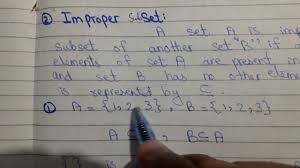 ② Improper Subset:
A set A is imp
subset of another set "B" if a
elements of set A are present in
and set B has no other elemen
is represented by ⊆.
① A = {1, 2, 3}, B = {1, 2, 3}
A ⊆ , B⊆A